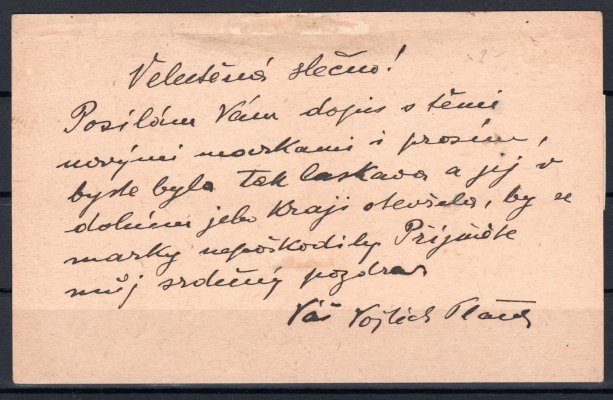 Velectěná slečno!
Posílám Vám dopis s těmi
novými markami i prosím,
byste byla tak laskava a jej v
dolním jeho kraji otevřela, by se
marky nepoškodily Přijměte
můj srdečný pozdrav
Váš Vojtěch